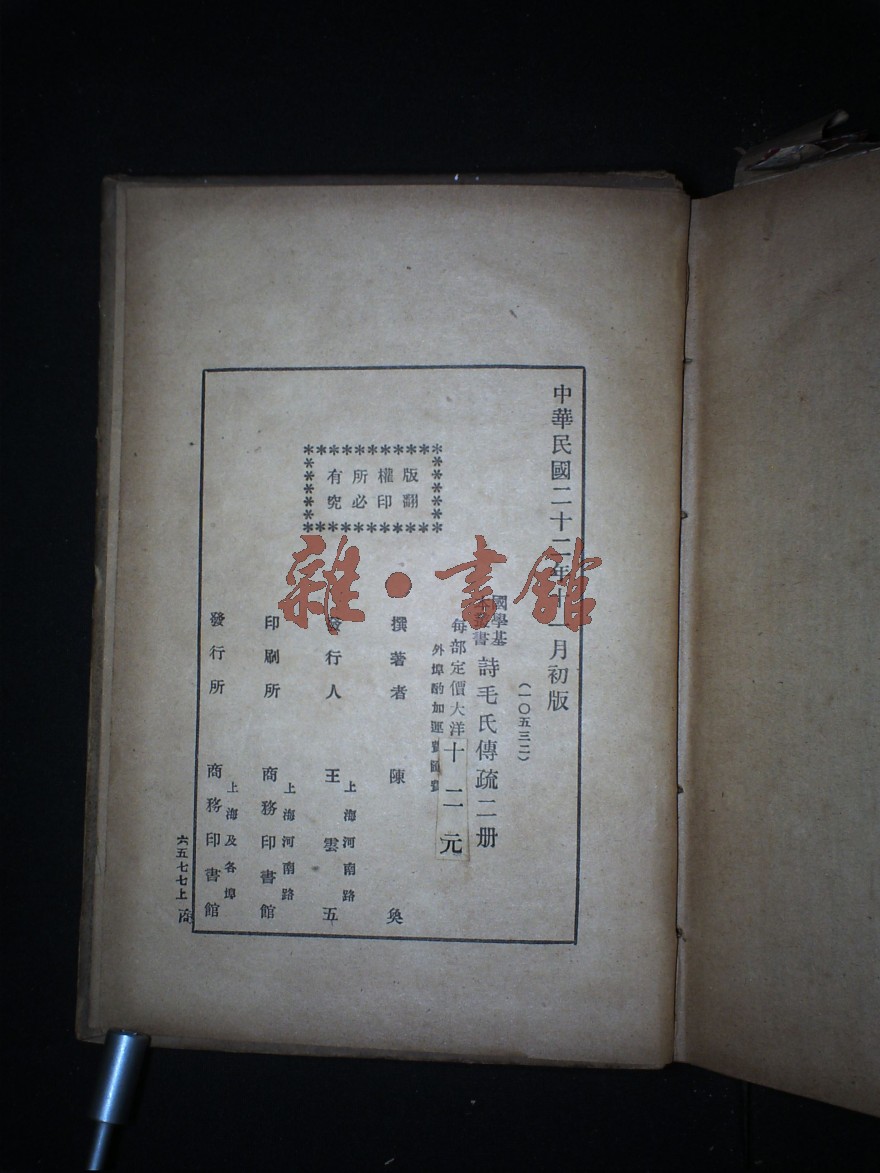 中華民國二十二年十一月初版
(一〇五三二)
國學基
本叢書
詩毛氏傳疏二册
每部定價大洋十二元
外埠酌加運費匯費
版權所有
翻印必究
撰著者 陳奐
發行人 王雲五
上海河南路
印刷所 商務印書館
上海河南路
發行所 商務印書館
上海及各埠
六五七七上
商
雜·書館